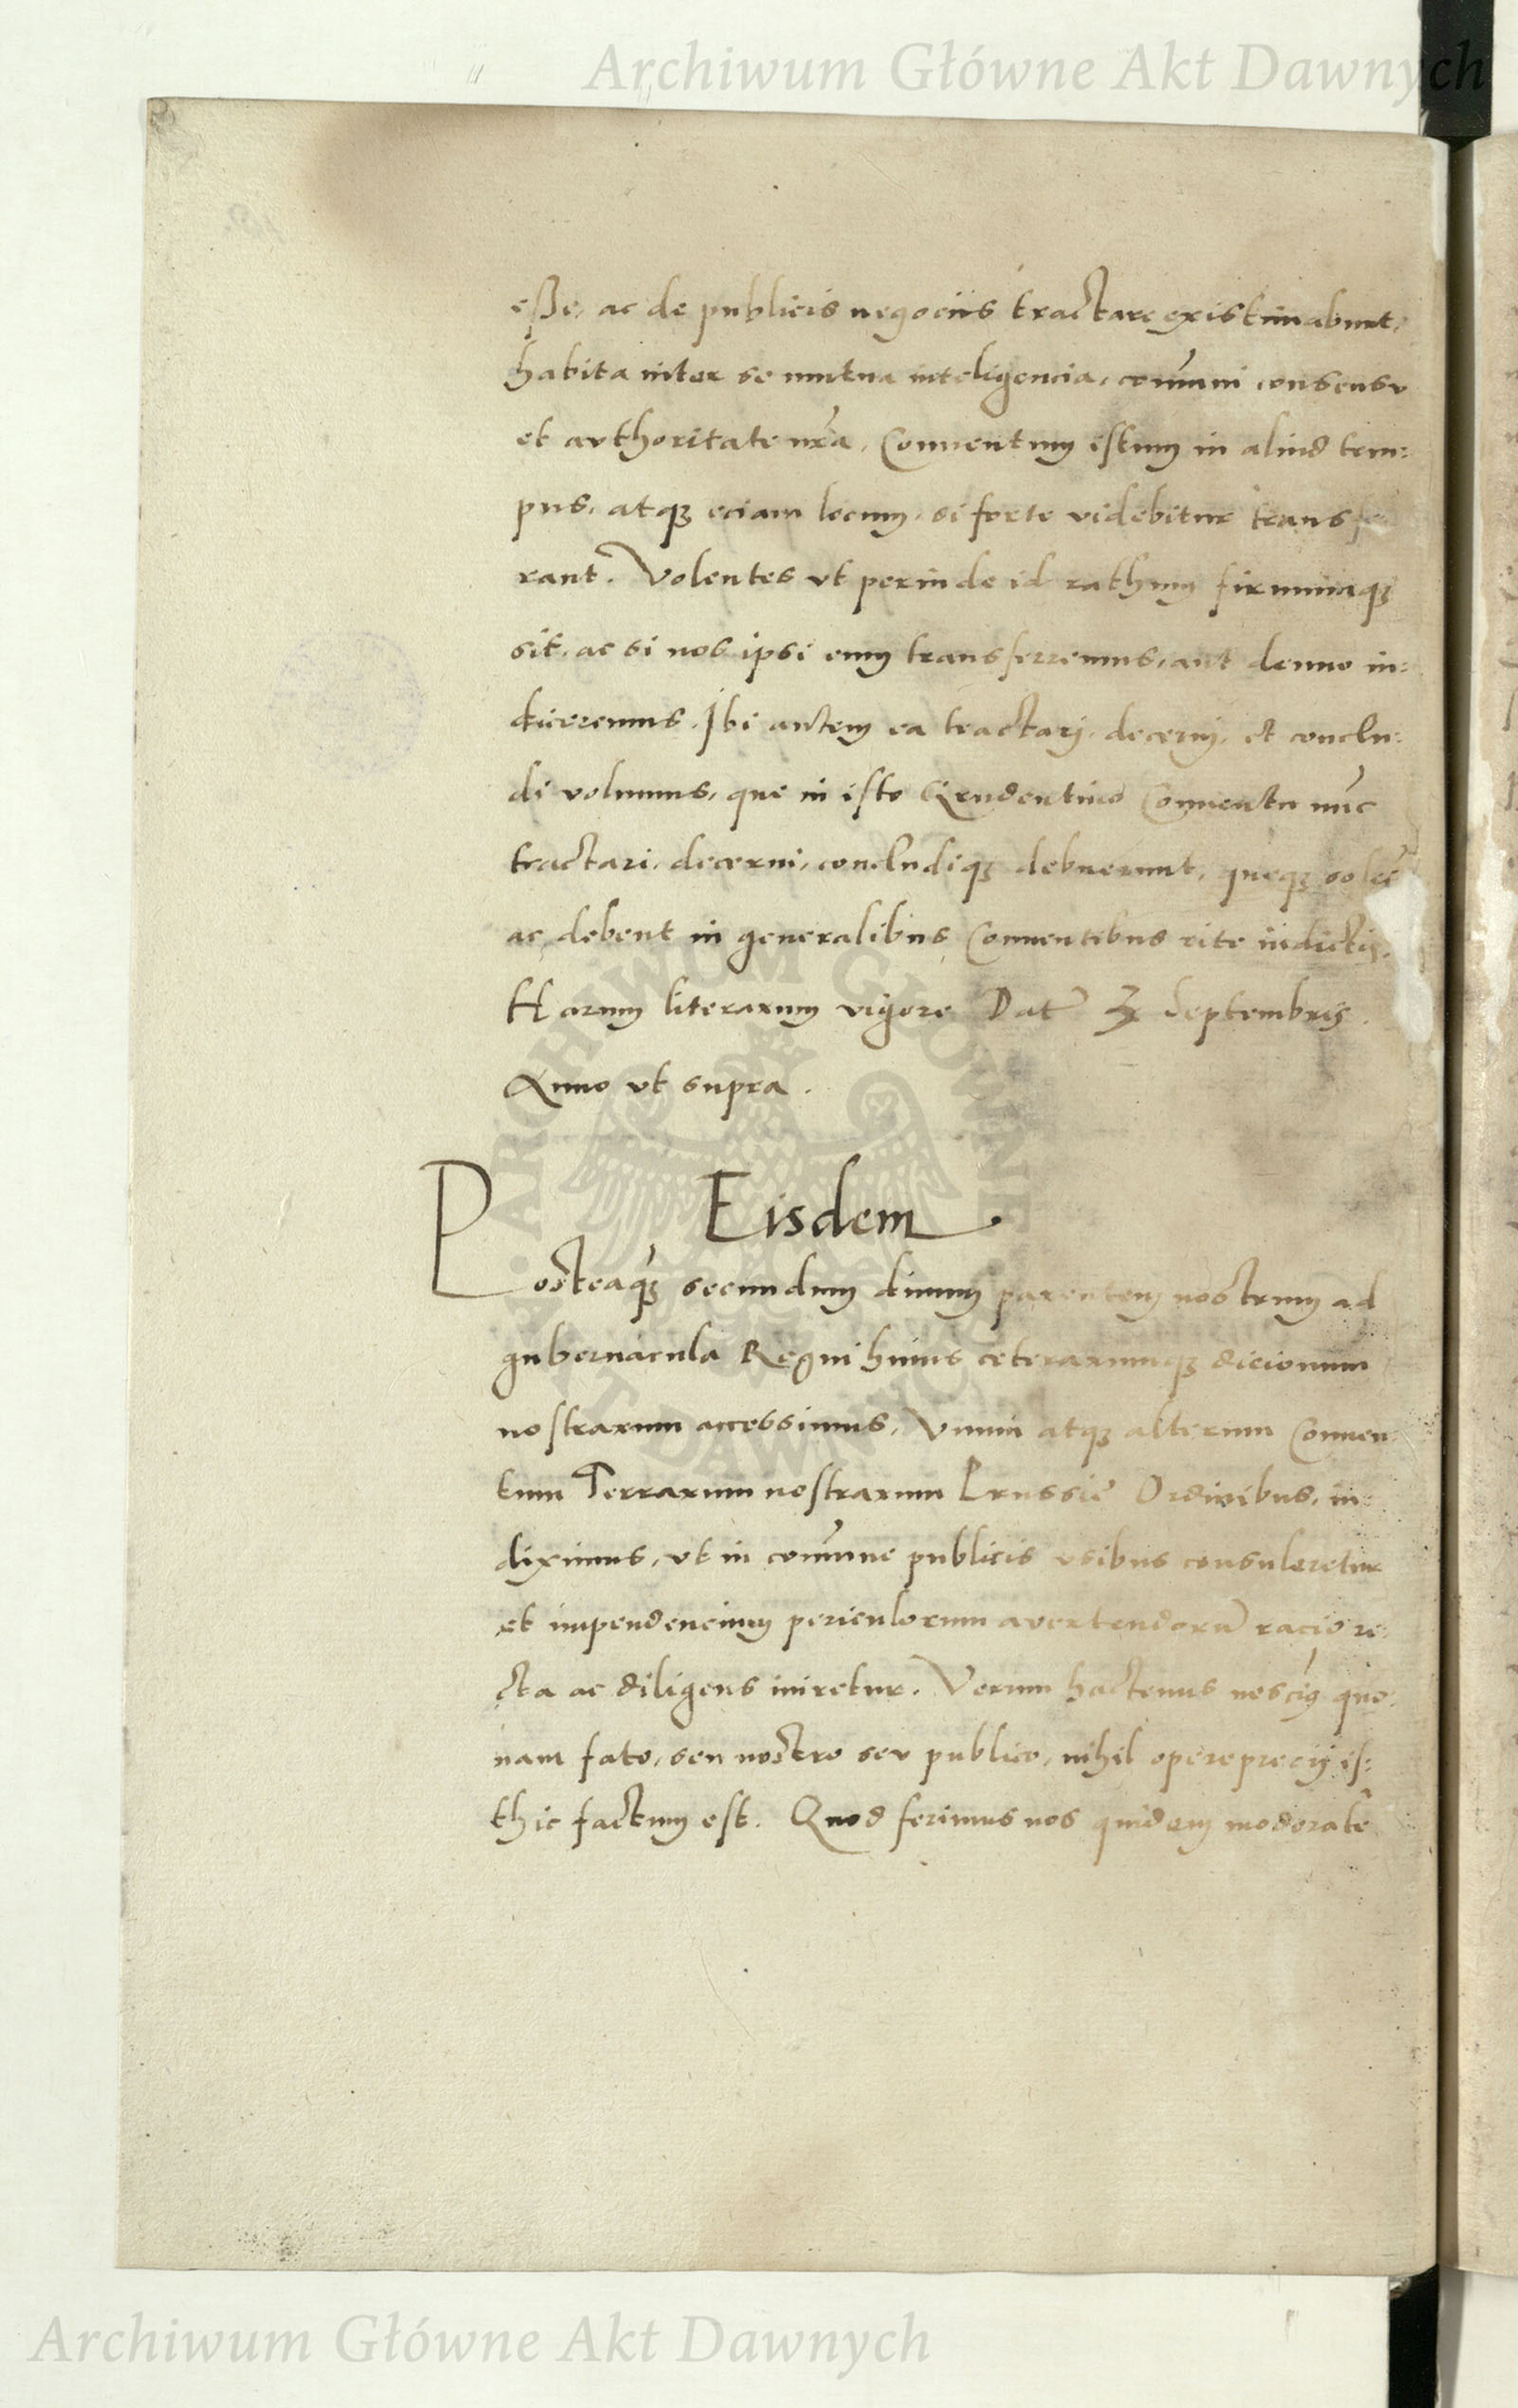 Archiwum Główne Akt Dawnych
eße, ac de publicis negociis tractare existimabunt,
habita inter se mutua inteligencia, com̃uni consensu
et authoritate nr̃a, Conuentum istum in aliud tem:
pus, atqꝫ eciam locum, si forte videbitur transfe
rant. Volentes vt perinde id rathum firmumqꝫ
sit, ac si nos ipsi eum transferremus, aut denuo in:
diceremus. Ibi autem ea tractari, decerni, et conclu:
di volumus, que in isto Grudentino Conuentu nũc
tractari, decerni, concludiqꝫ debuerunt, queqꝫ solẽt
ac debent in generalibus Conuentibus rite indictis.
Harum literarum vigore Dat̃ 3 Septembris
Anno vt supra.
Eisdem.
Posteaq̃ꝫ secundum diuum parentem nostrum ad
gubernacula Regni huius ceterarumqꝫ dicionum
nostrarum accessimus, Vnum atqꝫ alterum Conuen:
tum Terrarum nostrarum Prussie Ordinibus, in:
diximus, vt in com̃une publicis vsibus consuleretur
et impendencium periculorum auertendorũ racio re:
cta ac diligens iniretur. Verum hactenus nescim9 quo:
nam fato, seu nostro seu publico, nihil opereprecij is:
thic factum est. Quod ferimus nos quidem moderate
ARCHIWUM GŁÓWNE AKT DAWNYCH
Archiwum Główne Akt Dawnych